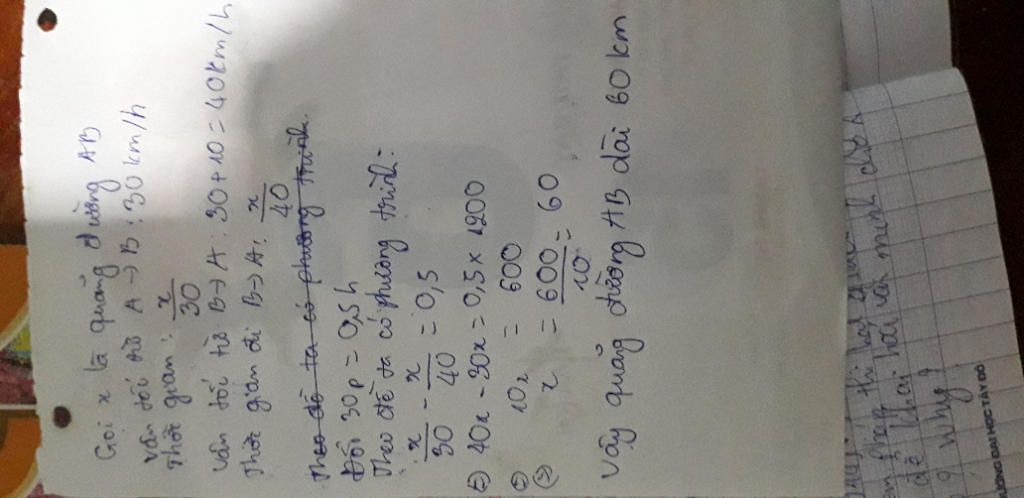 Gọi x là quãng đường AB
vận tốc từ A → B : 30 km/h
Thời gian : x/30
vận tốc từ B → A : 30 + 10 = 40 km/h
Thời gian đi B → A : x/40
Theo đề ta có phương trình.
Đổi 30p = 0,5h
Theo đề ta có phương trình:
x/30 - x/40 = 0,5
⇔ 40x - 30x = 0,5 x 1200
⇔ 10x = 600
⇔ x = 600/10 = 60
Vậy quãng đường AB dài 60 km
văn minh
đề
? why ?
TRƯỜNG ĐẠI HỌC TÂY ĐÔ